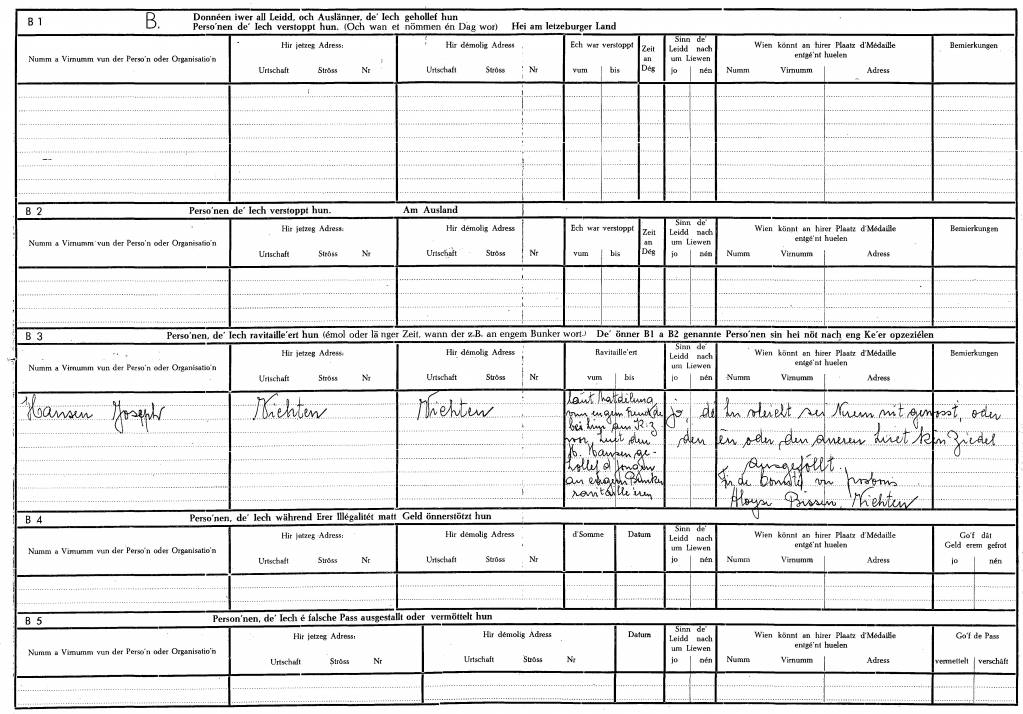 B 1 B. Donnéen iwer all Leidd, och Auslänner, de' Iech gehollef hun
Perso'nen de' Iech verstoppt hun. (Och wan et nömmen én Dag wor) Hei am letzeburger Land
Numm a Virnumm vun der Perso'n oder Organisatio'n
Hir jetzeg Adress:
Urtschaft Ströss Nr
Hir démolig Adress
Urtschaft Ströss Nr
Ech war verstoppt
vum bis
Zeit an Dég
Sinn de' Leidd nach um Liewen
jo nén
Wien könnt an hirer Plaatz d'Médaille entgé'nt huelen
Numm Virnumm Adress
Bemierkungen
B 2 Perso'nen de' Iech verstoppt hun. Am Ausland
Numm a Virnumm vun der Perso'n oder Organisatio'n
Hir jetzeg Adress:
Urtschaft Ströss Nr
Hir démolig Adress
Urtschaft Ströss Nr
Ech war verstoppt
vum bis
Zeit an Dég
Sinn de' Leidd nach um Liewen
jo nén
Wien könnt an hirer Plaatz d'Médaille entgé'nt huelen
Numm Virnumm Adress
Bemierkungen
B 3 Perso'nen, de' Iech ravitaille'ert hun (émol oder lä nger Zeit, wann der z.B. an engem Bunker wort.) De' önner B1 a B2 genannte Perso'nen sin hei nöt nach eng Ke'er opzeziélen
Numm a Virnumm vun der Perso'n oder Organisatio'n
Hir jetzeg Adress:
Urtschaft Ströss Nr
Hir démolig Adress
Urtschaft Ströss Nr
Ravitaille'ert
vum bis
Sinn de' Leidd nach um Liewen
jo nén
Wien könnt an hirer Plaatz d'Médaille entgé'nt huelen
Numm Virnumm Adress
Bemierkungen
Hansen Joseph
Vichten
Vichten
laut
vun engem
bei him am K.Z
wor, huet den
H. Hansen ge-
hollef d'Jongen
an engem Bunker
ravitailleren
jo, de hu vleicht sei Numm nit gewosst, oder
den én oder den aneren huet kén Ziedel
ausgefollt.
Fir de
Aloyse Bissen, Vichten
B 4 Perso'nen, de' Iech während Erer Illégalitét matt Geld önnerstötzt hun
Numm a Virnumm vun der Perso'n oder Organisatio'n
Hir jetzeg Adress:
Urtschaft Ströss Nr
Hir démolig Adress
Urtschaft Ströss Nr
d'Somme
Datum
Sinn de' Leidd nach um Liewen
jo nén
Wien könnt an hirer Plaatz d'Médaille entgé'nt huelen
Numm Virnumm Adress
Go'f dât Geld erem gefrot
jo nén
B 5 Person'nen, de' Iech é falsche Pass ausgestallt oder vermöttelt hun
Numm a Virnumm vun der Perso'n oder Organisatio'n
Hir jetzeg Adress:
Urtschaft Ströss Nr
Hir démolig Adress
Urtschaft Ströss Nr
Datum
Sinn de' Leidd nach um Liewen
jo nén
Wien könnt an hirer Plaatz d'Médaille entgé'nt huelen
Numm Virnumm Adress
Go'f de Pass
vermettelt verschäft